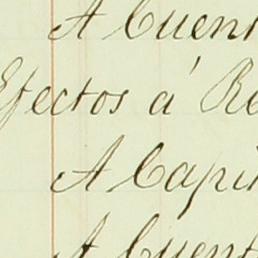 A Cuent
Efectos á Re
A Capi
A Cuent